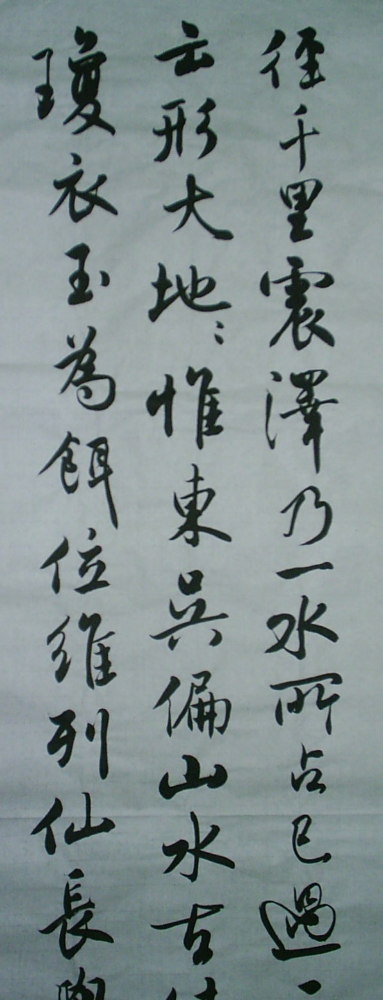 徑千里震澤乃一水所占已過
云形大地〻惟東吳偏山水古
瓊衣玉為餌位維列仙長